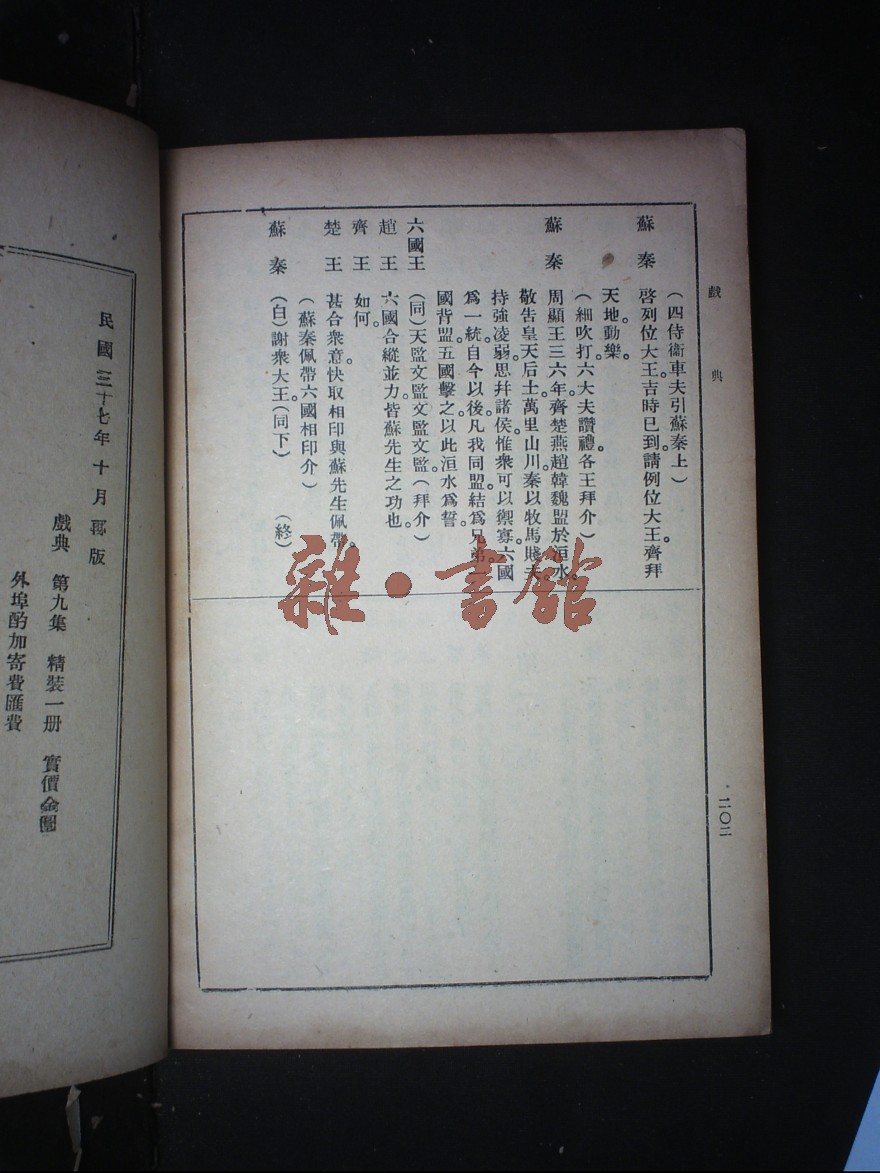 戲典
（四侍衞車夫引蘇秦上）
蘇秦 啓列位大王。吉時已到。請例位大王。齊拜
天地。動樂。
（細吹打。六大夫讚禮。各王拜介）
蘇秦 周顯王三六年。齊楚燕趙韓魏盟於洹水。
敬告皇天后土。萬里山川。秦以牧馬賤夫。
持強凌弱。思幷諸侯。惟衆可以禦寡。六國
爲一統。自今以後。凡我同盟。結爲兄弟。一
國背盟。五國擊之。以此洹水爲誓。
六國王 （同）天監文監文監文監。（拜介）
趙王 六國合縱並力。皆蘇先生之功也。
齊王 如何。
楚王 甚合衆意。快取相印與蘇先生佩帶。
（蘇秦佩帶六國相印介）
蘇秦 （白）謝衆大王。（同下） （終）
二〇二
雜·書館
民國三十七年十月再版
戲典 第九集 精裝一册 實價金圓
外埠酌加寄費匯費